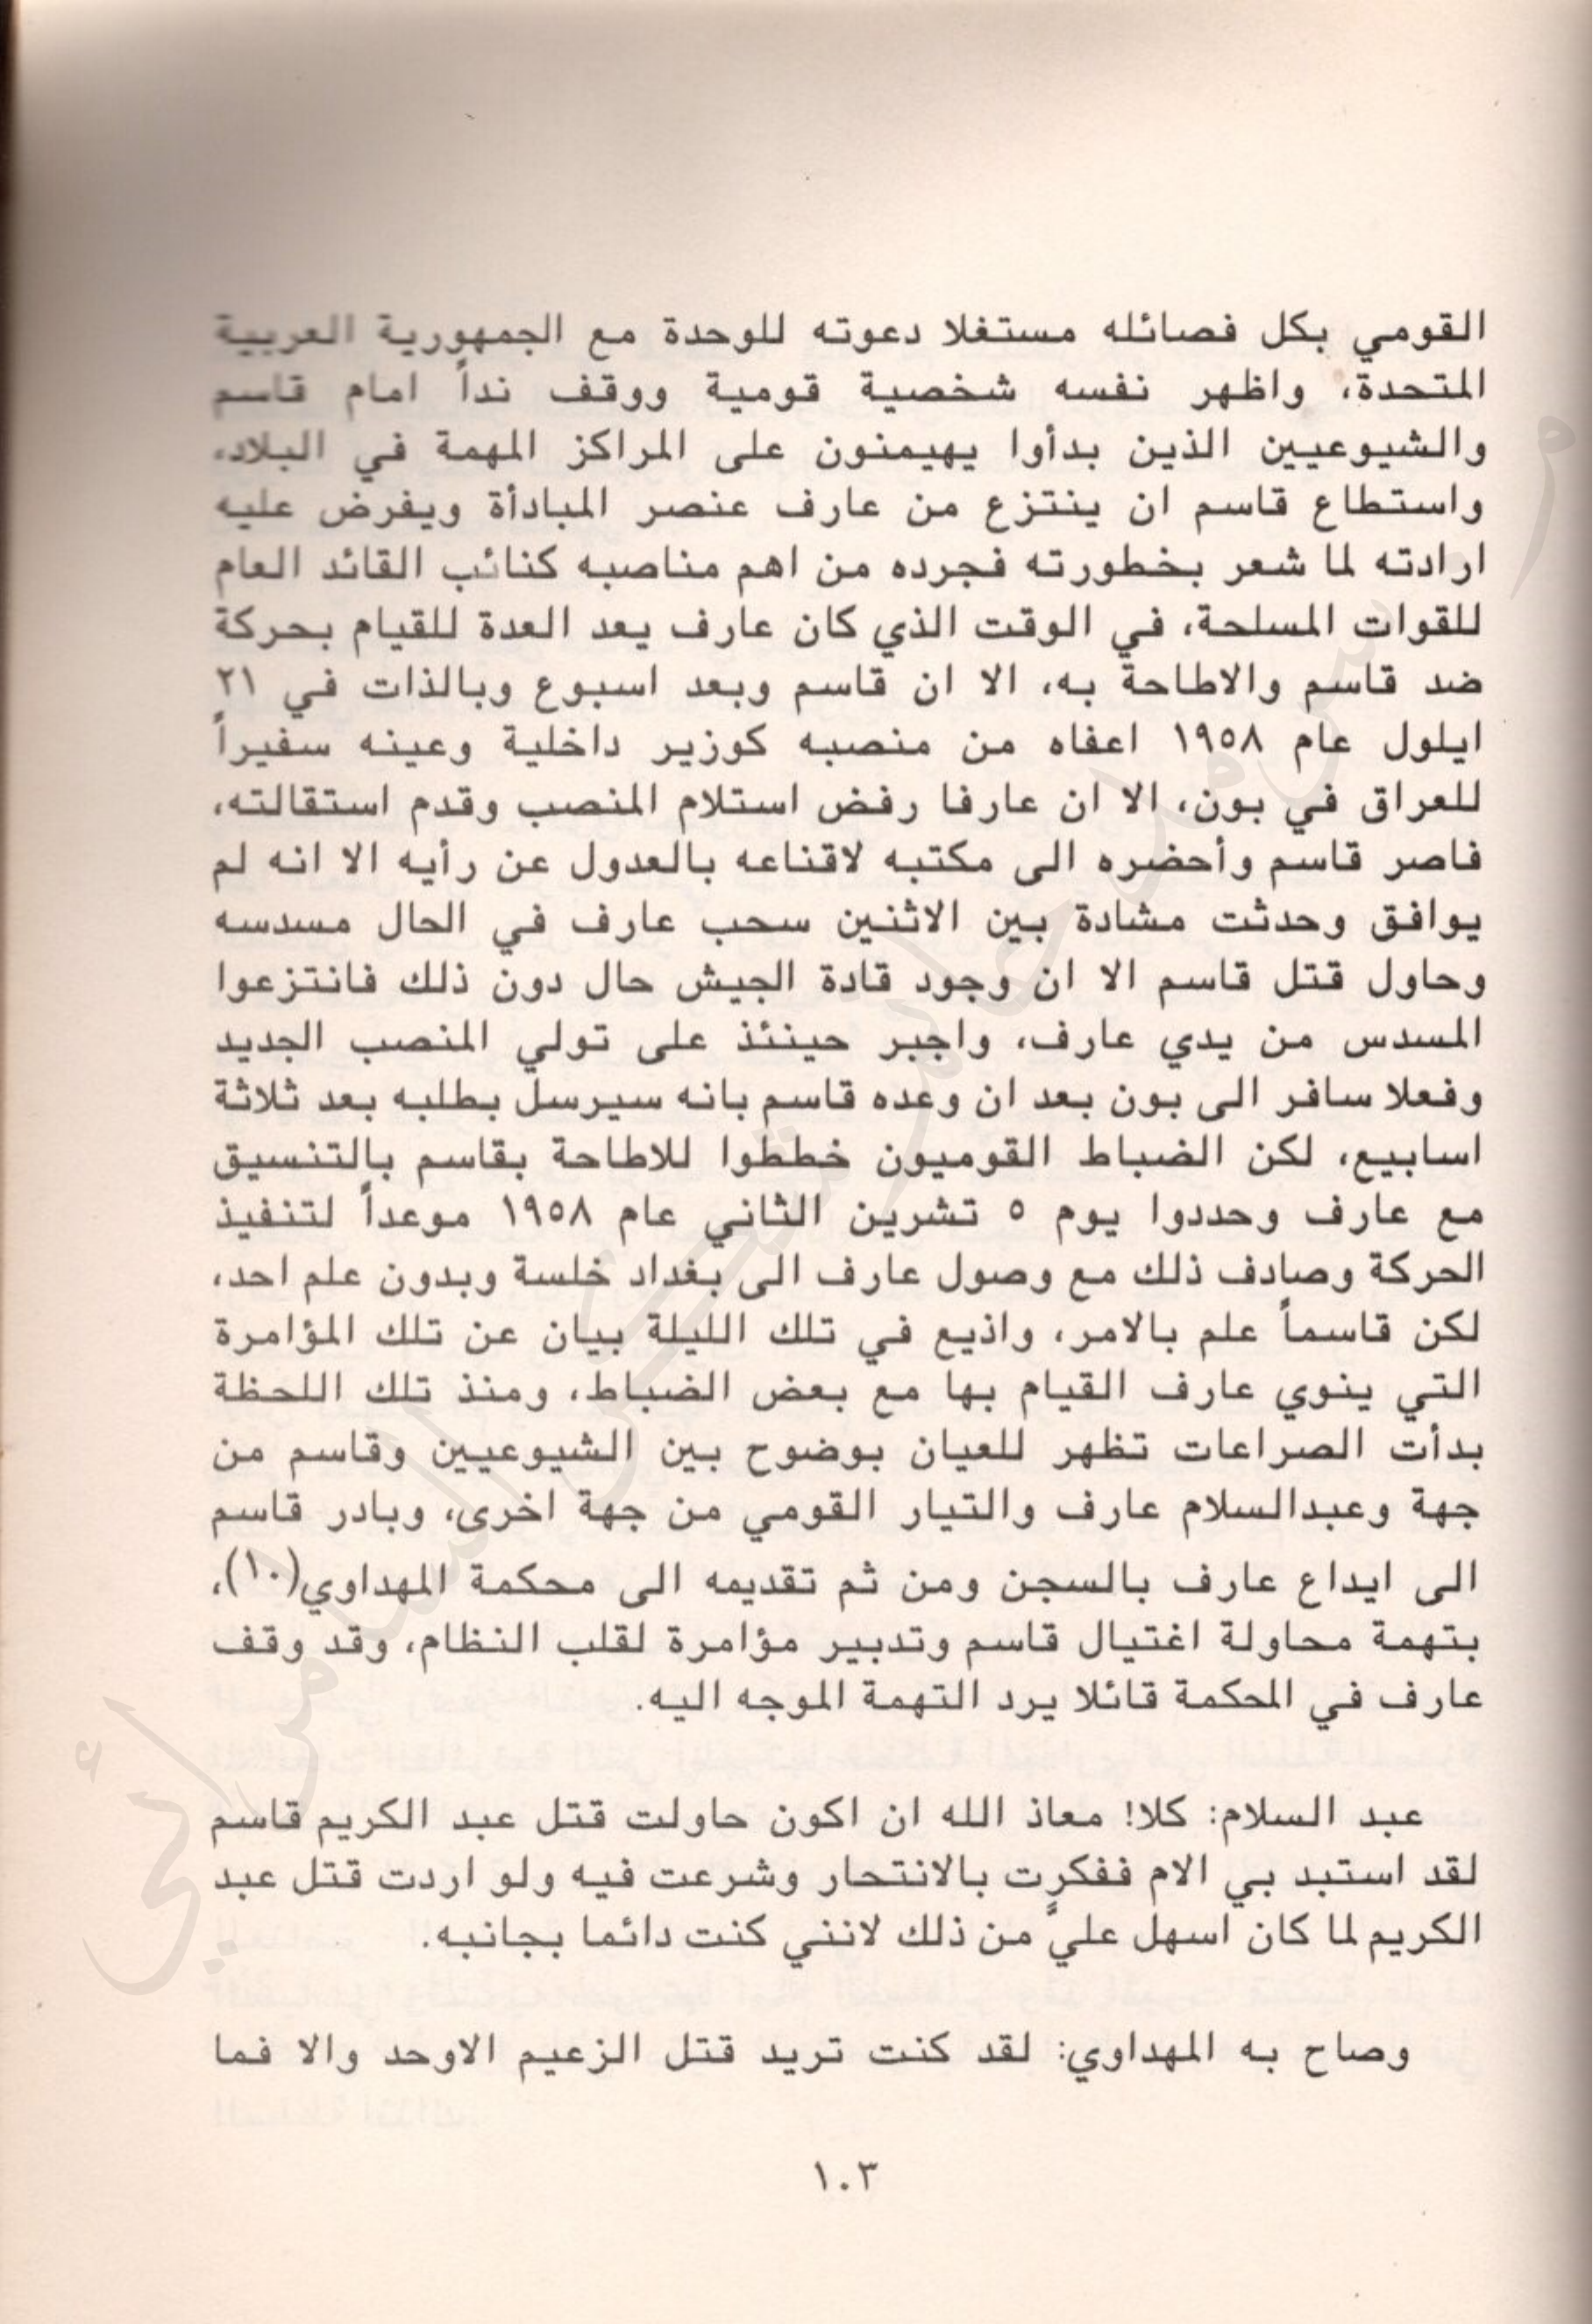 القومي بكل فصائله مستغلا دعوته للوحدة مع الجمهورية العربية
المتحدة، واظهر نفسه شخصية قومية ووقف نداً امام قاسم
والشيوعيين الذين بدأوا يهيمنون على المراكز المهمة في البلاد،
واستطاع قاسم ان ينتزع من عارف عنصر المبادأة ويفرض عليه
ارادته لما شعر بخطورته فجرده من اهم مناصبه كنائب القائد العام
للقوات المسلحة، في الوقت الذي كان عارف يعد العدة للقيام بحركة
ضد قاسم والاطاحة به، الا ان قاسم وبعد اسبوع وبالذات في ٢١
ايلول عام ١٩٥٨ اعفاه من منصبه كوزير داخلية وعينه سفيراً
للعراق في بون، الا ان عارفا رفض استلام المنصب وقدم استقالته،
فاصر قاسم وأحضره الى مكتبه لاقناعه بالعدول عن رأيه الا انه لم
يوافق وحدثت مشادة بين الاثنين سحب عارف في الحال مسدسه
وحاول قتل قاسم الا ان وجود قادة الجيش حال دون ذلك فانتزعوا
المسدس من يدي عارف، واجبر حينئذ على تولي المنصب الجديد
وفعلا سافر الى بون بعد ان وعده قاسم بانه سيرسل بطلبه بعد ثلاثة
اسابيع، لكن الضباط القوميون خططوا للاطاحة بقاسم بالتنسيق
مع عارف وحددوا يوم ٥ تشرين الثاني عام ١٩٥٨ موعداً لتنفيذ
الحركة وصادف ذلك مع وصول عارف الى بغداد خلسة وبدون علم احد،
لكن قاسماً علم بالامر، واذيع في تلك الليلة بيان عن تلك المؤامرة
التي ينوي عارف القيام بها مع بعض الضباط، ومنذ تلك اللحظة
بدأت الصراعات تظهر للعيان بوضوح بين الشيوعيين وقاسم من
جهة وعبدالسلام عارف والتيار القومي من جهة اخرى، وبادر قاسم
الى ايداع عارف بالسجن ومن ثم تقديمه الى محكمة المهداوي(١٠)،
بتهمة محاولة اغتيال قاسم وتدبير مؤامرة لقلب النظام، وقد وقف
عارف في المحكمة قائلا يرد التهمة الموجه اليه.
عبد السلام: كلا! معاذ الله ان اكون حاولت قتل عبد الكريم قاسم
لقد استبد بي الام ففكرت بالانتحار وشرعت فيه ولو اردت قتل عبد
الكريم لما كان اسهل عليّ من ذلك لانني كنت دائما بجانبه.
وصاح به المهداوي: لقد كنت تريد قتل الزعيم الاوحد والا فما
١٠٣